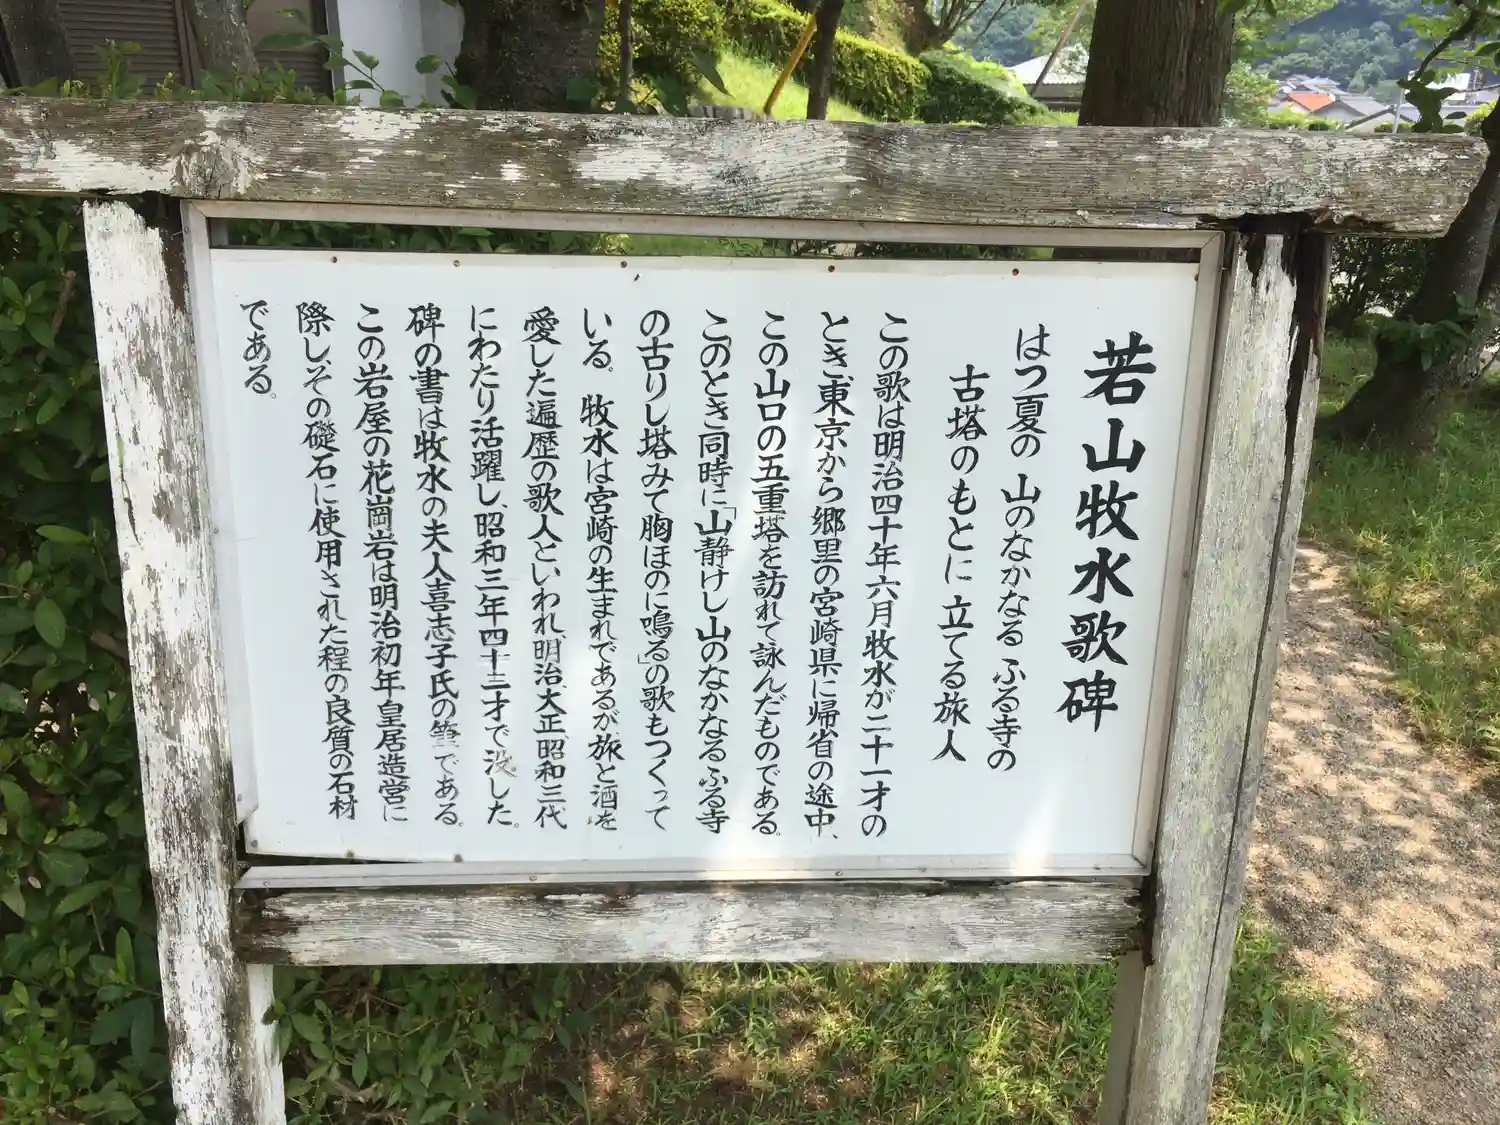 若山牧水歌碑
はつ夏の 山のなかなる ふる寺の
古塔のもとに 立てる旅人
この歌は明治四十年六月牧水が二十一才の
とき、東京から郷里の宮崎県に帰省の途中、
この山口の五重塔を訪れて詠んだものである。
このとき同時に「山静けし山のなかなるふる寺
の古りし塔みて胸ほのに鳴る」の歌もつくって
いる。牧水は宮崎の生まれであるが旅と酒を
愛した遍歴の歌人といわれ、明治、大正、昭和三代
にわたり活躍し、昭和三年四十三才で没した。
碑の書は牧水の夫人喜志子氏の筆である。
この岩屋の花崗岩は明治初年皇居造営に
際し、その礎石に使用された程の良質の石材
である。